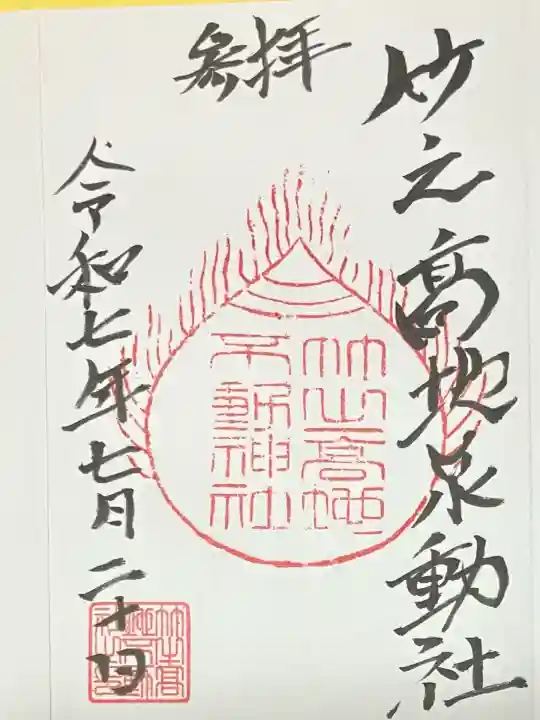 参拝
竹之高地不動社
竹之高地
不動神社
令和七年七月二十日